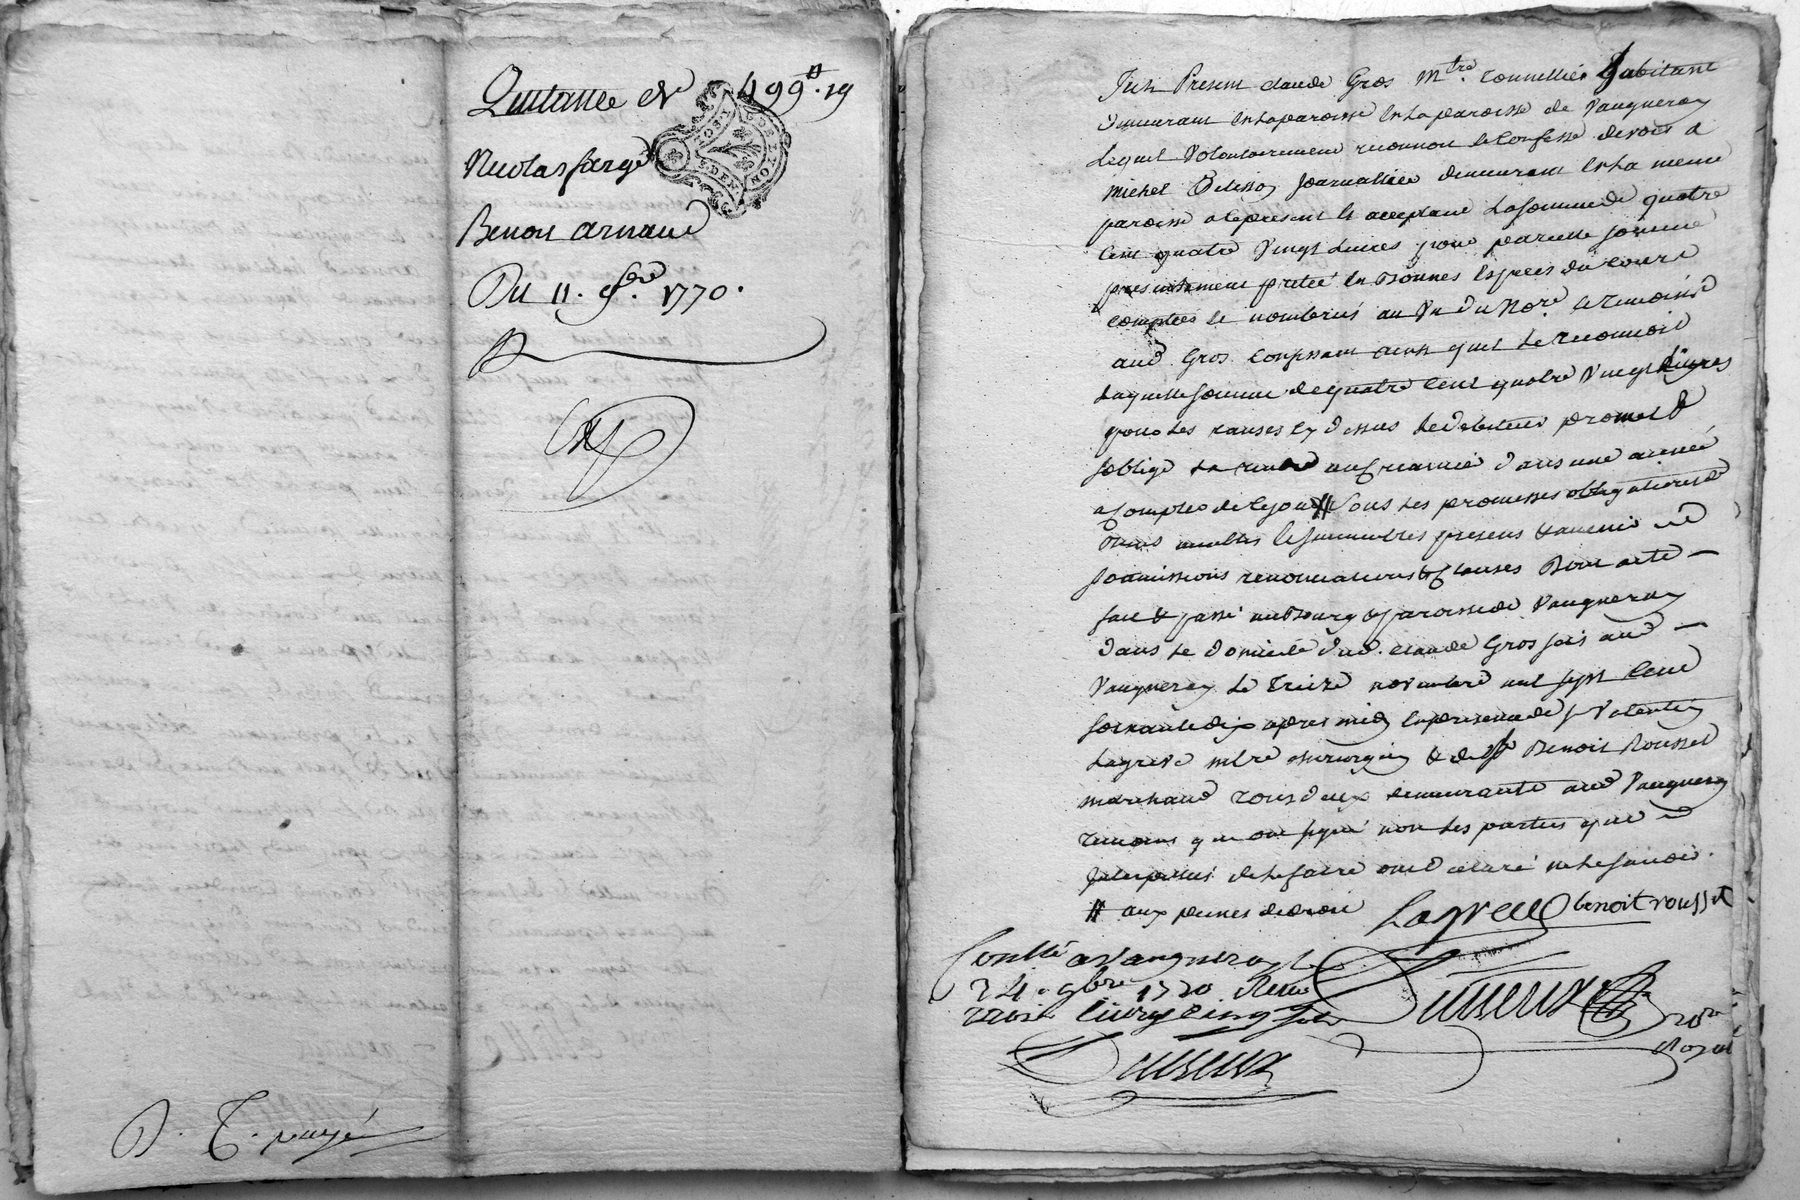 Quittance de 499ᵗᵗ. 19
Nicolas farge
G. DE LYON
DEN.
Benoit arnaud
Du 11. 9bre. 1770.
D. T. payé
Fut Present claude Gros Mtre. Tonnellier habitant
demeurant en la paroisse en la paroisse de Vaugneray
Lequel volontairement reconnoit et Confesse devoir a
Michel Pelisson Journallier demeurant en la meme
paroisse a ce present et acceptant La Somme de quatre
Cent quatre Vingt Livres pour pareille somme
presentement pretée en Bonnes Especes du Cours
comptées et nombrées au Vu du Nore. et temoins
aud Gros Confessant ainsi quil Le reconnoit
Laquelle Somme de quatre Cent quatre Vingt Livres
pour Les causes Cy dessus Le debiteur promet &
soblige La rendre dans une année
a Compter de ce jour # Sous Les promesses obligations de
Biens meubles & immeubles presens & avenir
Soumissions renonciations & Clauses Dont acte —
fait & passé au Bourg & paroisse de Vaugneray
dans Le domicile dud. claude Gros sis aud —
Vaugneray Le Treize novembre mil sept Cent
soixante dix apres midy En presence de sr Valentin
Lagreve mtre chirurgien & de sr Benoit Rousset
marchand tous deux demeurants aud Vaugneray
temoins qui ont signé non Les parties qui
Interpellés de Le faire ont déclaré ne Le savoir.
# aux peines de droit Lagreve benoit rousset
Conllé a Vaugneray Le
24. 9bre 1770 Reçu
trois Livres Cinq sols
nore
Royal